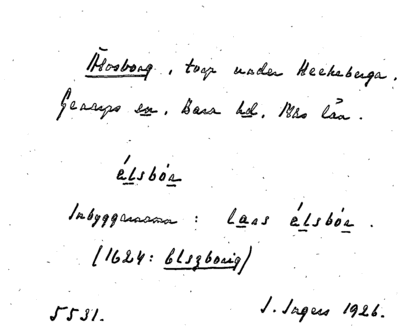 Älvsborg, torp under Heckeberga.
Genarps sn, Bara hd, Mas län.
élsbór
Inbyggarnamn: lars élsbór.
(1624: Elszborig)
5531. I. Ingers 1926.